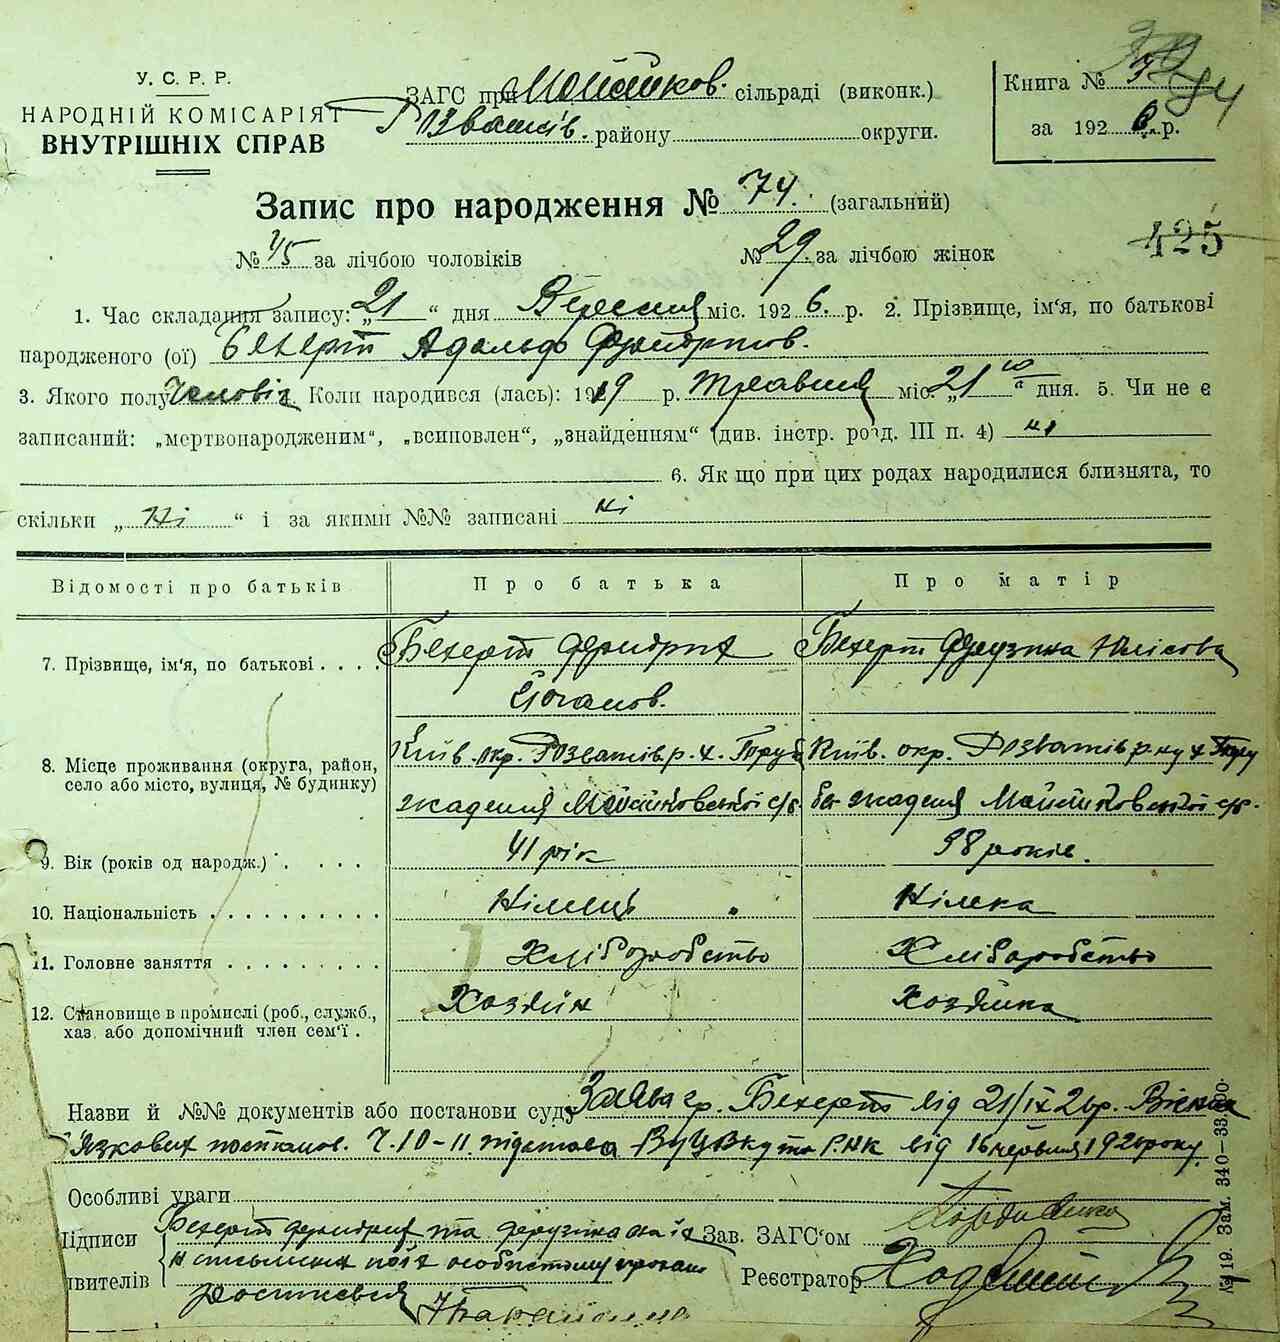 У. С. Р. Р.
НАРОДНІЙ КОМІСАРІЯТ
ВНУТРІШНІХ СПРАВ
ЗАГС при Мойсиков. сільраді (виконк.)
Розважів. району округи.
Книга №
за 192 6 р.
84
Запис про народження № 74. (загальний)
№ 45 за лічбою чоловіків № 29. за лічбою жінок
425
1. Час складання запису: „21“ дня Вересня міс. 192 6. р. 2. Прізвище, ім‘я, по батькові
народженого (ої) Бехерт Адольф Фрідрихов.
3. Якого полу Чоловіч Коли народився (лась): 1919 р. травня міс. „21го“ дня. 5. Чи не є
записаний: „мертвонародженим“, „всиновлен“, „знайденням“ (див. інстр. розд. III п. 4) ні
6. Як що при цих родах народилися близнята, то
скільки „ Ні “ і за якими №№ записані ні
Відомості про батьків Про батька Про матір
7. Прізвище, ім‘я, по батькові . . . . Бехерт Фридрих Бехерт
Йоганов.
8. Місце проживання (округа, район, Київ. окр. Розважів р. х. Київ. окр. Розважів р.
село або місто, вулиця, № будинку) Мойсиковської с/р. Мойсиковської с/р.
9. Вік (років од народж.) . . . . . 41 рік 38 років.
10. Національність . . . . . . . . . . Німець Німка
11. Головне заняття . . . . . . . . . Хліборобство Хліборобство
12. Становище в промислі (роб., служб., Хозяїн Хозяйка
хаз. або допомічний член сем‘ї .
Назви й №№ документів або постанови суду Заява гр. Бехерт від 21/IX 26р.
постанов. Ч. 10-11 підстава ВУЦВКу та РНК від 16 червня 1926 року.
Особливі уваги
Підписи Бехерт Фридрих та Зав. ЗАГС‘ом
явителів Реєстратор
№ 19. Зам. 340—33.000.